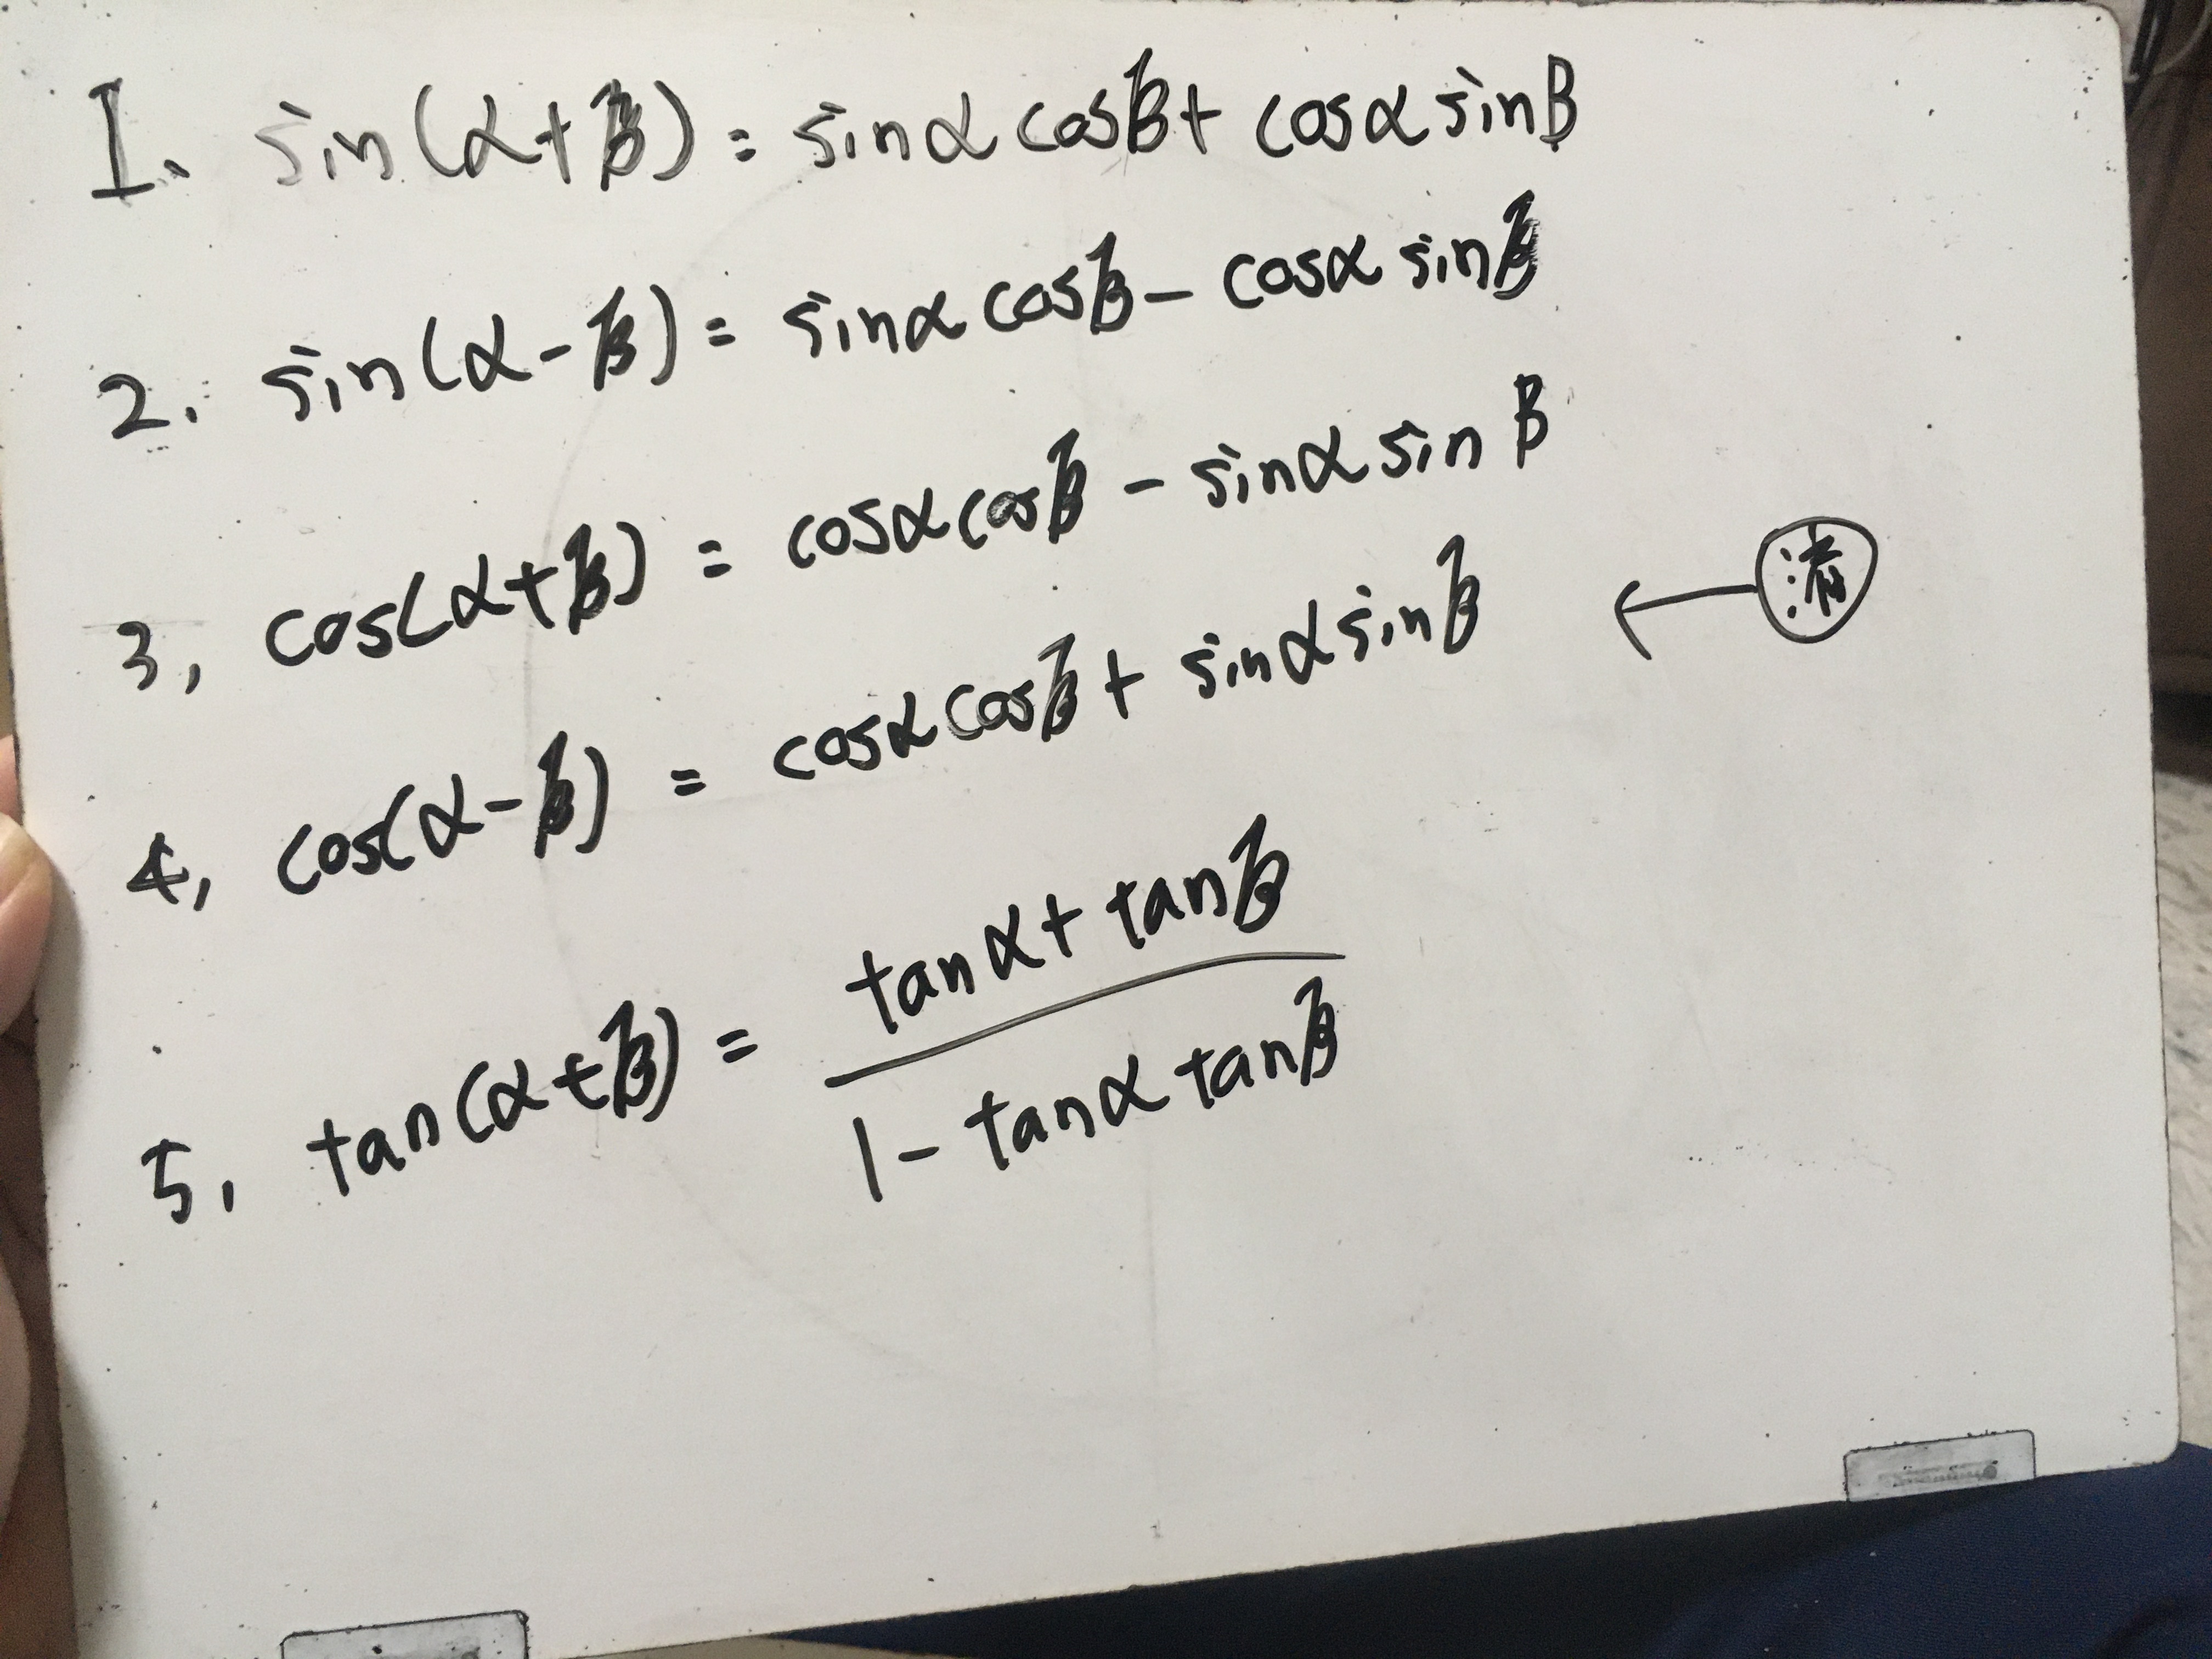 1. sin(α+β) = sinα cosβ + cosα sinβ
2. sin(α-β) = sinα cosβ - cosα sinβ
3, cos(α+β) = cosα cosβ - sinα sinβ
4, cos(α-β) = cosα cosβ + sinα sinβ
5, tan(α+β) = tanα + tanβ
1 - tanα tanβ